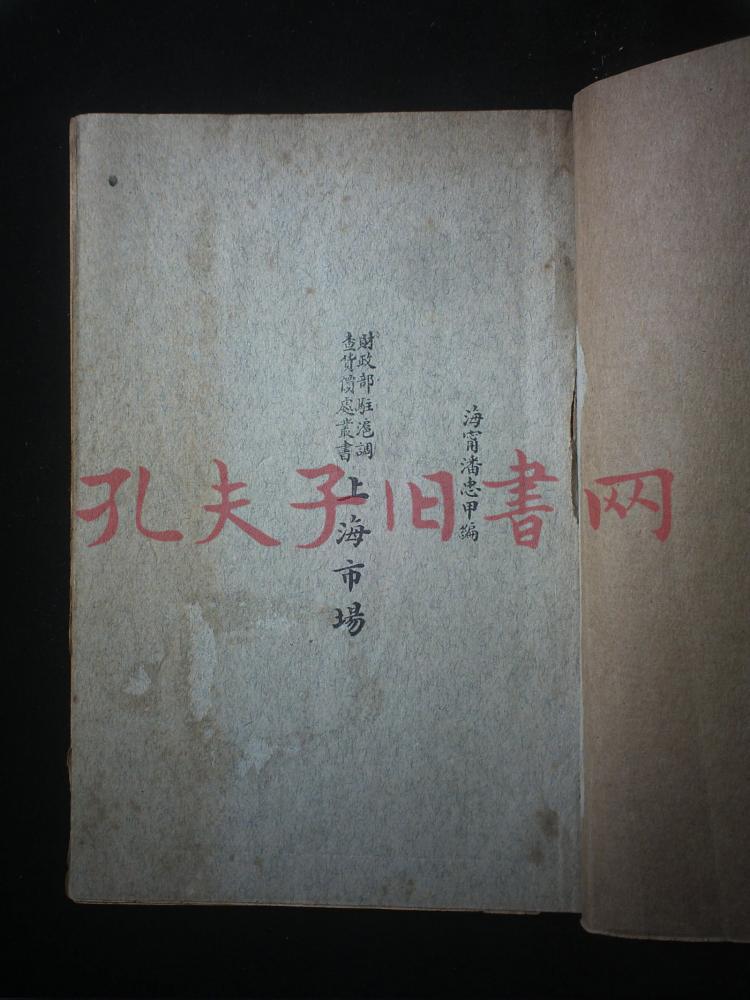 海甯潘忠甲編
財政部駐滬調
查貨價處叢書
上海市場
孔夫子旧書网